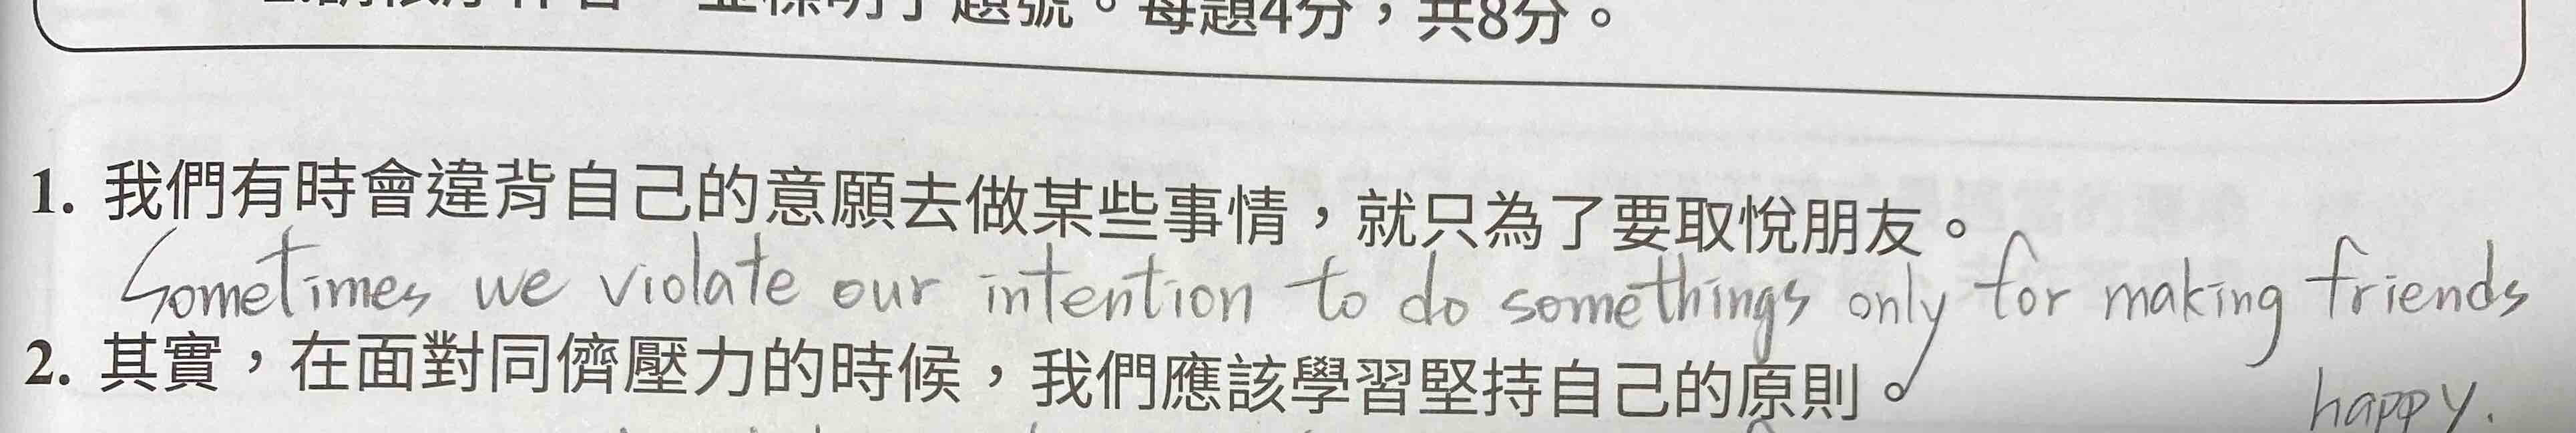 題號。每題4分，共8分。
1. 我們有時會違背自己的意願去做某些事情，就只為了要取悅朋友。
Sometimes we violate our intention to do somethings only for making friends
happy.
2. 其實，在面對同儕壓力的時候，我們應該學習堅持自己的原則。